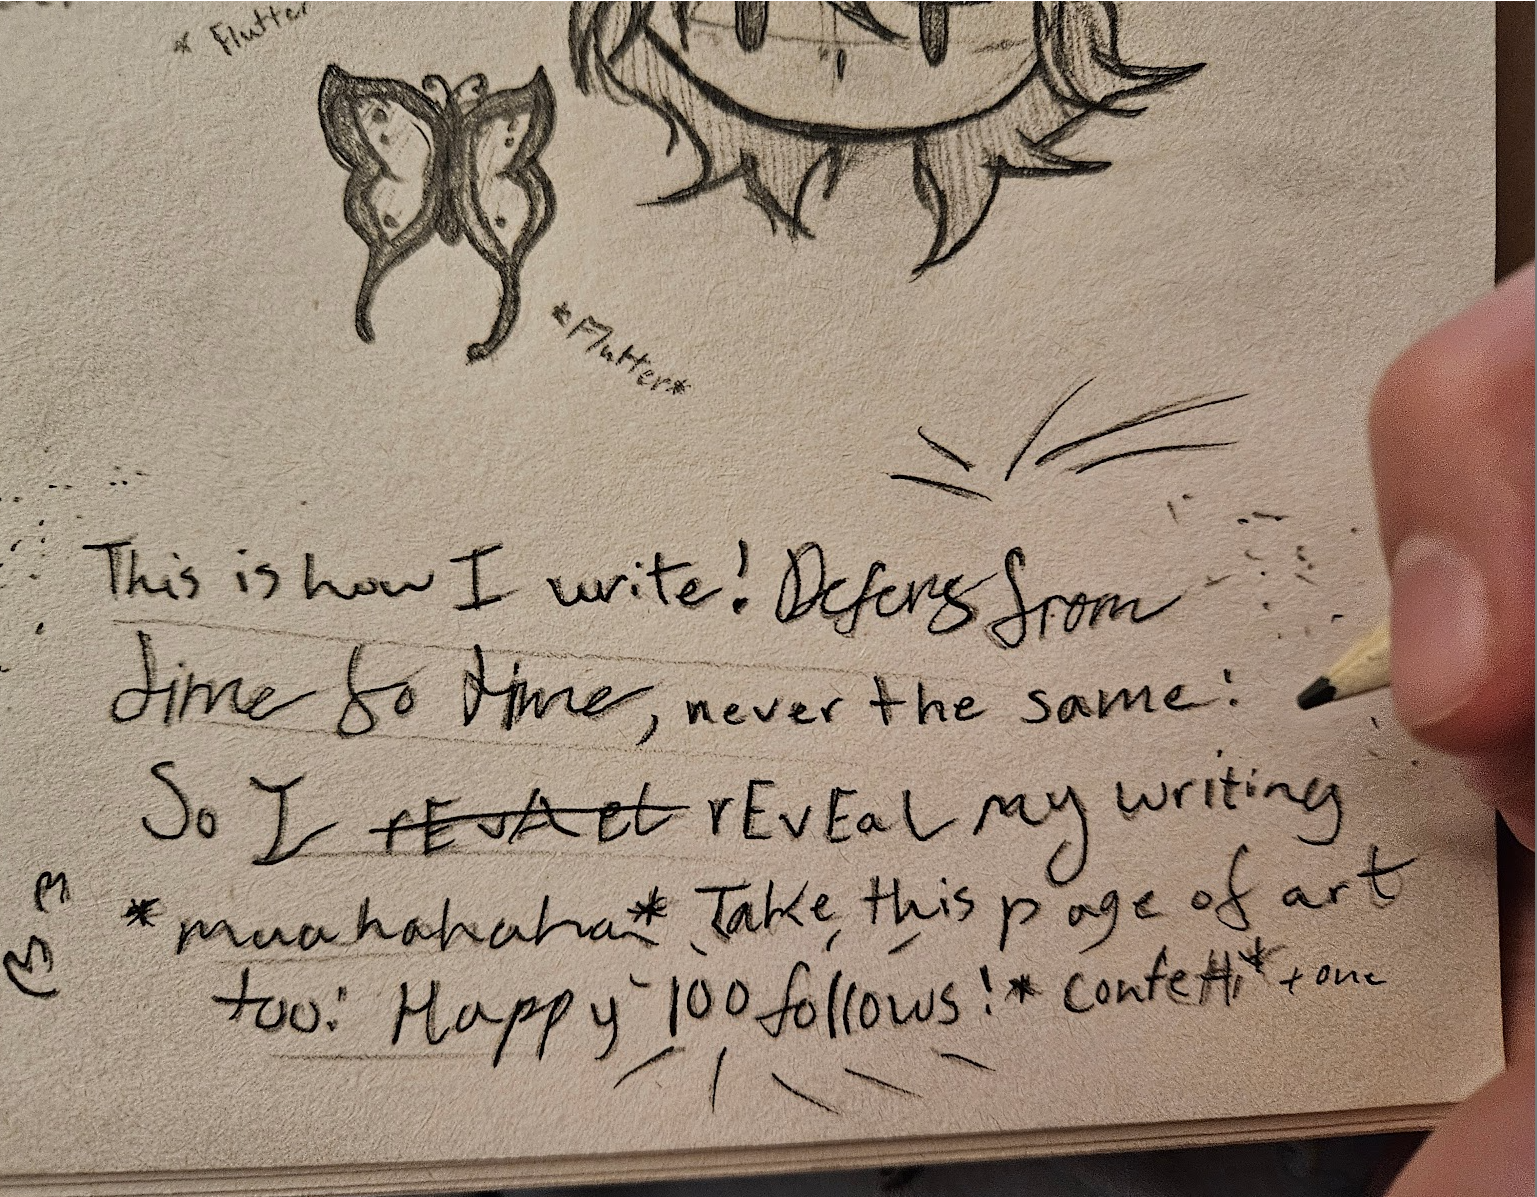 * Flutter
*Flutter*
This is how I write! Defers from
time to time, never the same!
So I rEvAel rEvEaL my writing
*muahahahaha* Take this page of art
too! Happy 100 follows! *confetti* + one